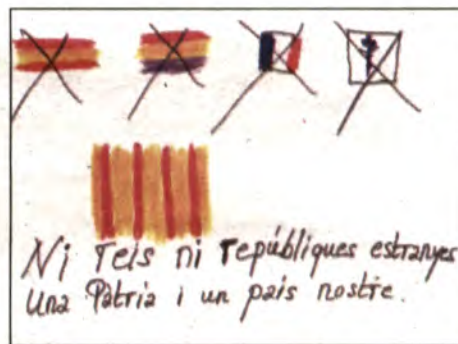 Ni reis ni repúbliques estranyes
Una Pàtria i un país nostre.